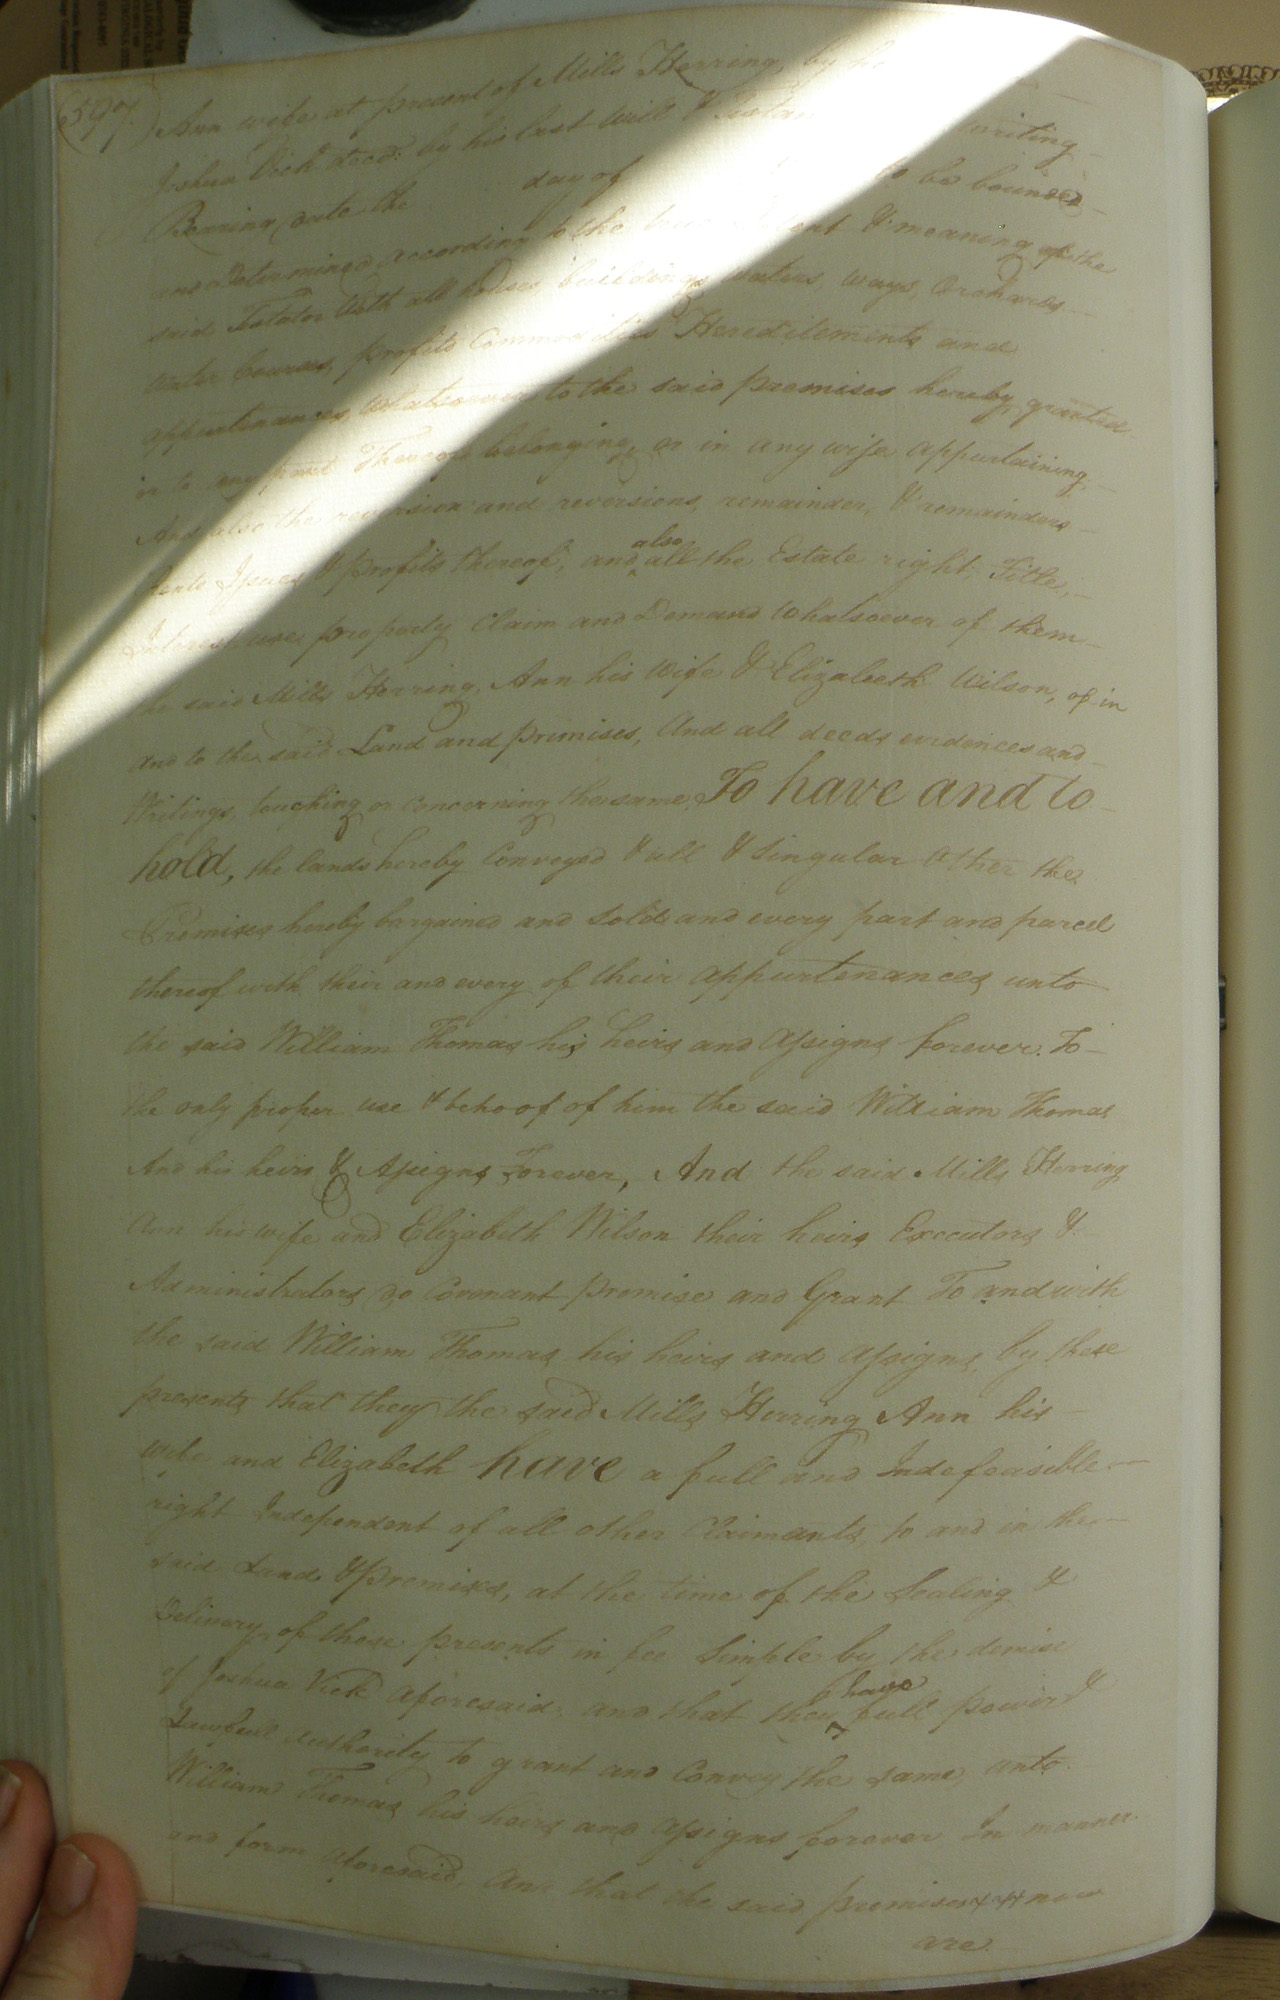 597.
Ann wife at present of Mills Herring, by
Joshua Vick decd: by his last Will & writing
Bearing date the day of to be bounded
and Determined according to the true Intent & meaning of the
said Testator With all houses buildings waters, ways, Orchards
water Courses, profits Commodities Hereditements and
appurtenances whatsoever to the said premises hereby granted
or to any part Thereof belonging or in any wise appurtaining
And also the reversion and reversions, remainder, & remainders
Rents Issues & profits thereof, and also all the Estate right, Title,
Interest use, property Claim and Demand Whatsoever of them
the said Mills Herring, Ann his Wife & Elizabeth Wilson, of in
and to the said Land and premises, And all deeds evidences and
Writings, touching or concerning the same, To have and to
hold, the lands hereby Conveyed & all & Singular Other the
Premises hereby bargained and Sold and every part and parcel
thereof with their and every of their appurtenances unto
the said William Thomas his heirs and assigns forever. To
the only proper use & behoof of him the said William Thomas
And his heirs & Assigns Forever, And the said Mills Herring
Ann his wife and Elizabeth Wilson their heirs Executors &
Administrators do Covenant promise and Grant To and with
the said William Thomas his heirs and assigns, by these
presents that they the said Mills Herring Ann his
wife and Elizabeth have a full and Indefeasible
right Independent of all other Claimants, to and in the
said Land & premises, at the time of the Sealing &
Delivery of these presents in fee Simple by the demise
of Joshua Vick aforesaid. and that they have full power &
Lawfull authority to grant and Convey the same, unto
William Thomas his heirs and assigns forever In manner
and form aforesaid, And that the said premises now
are